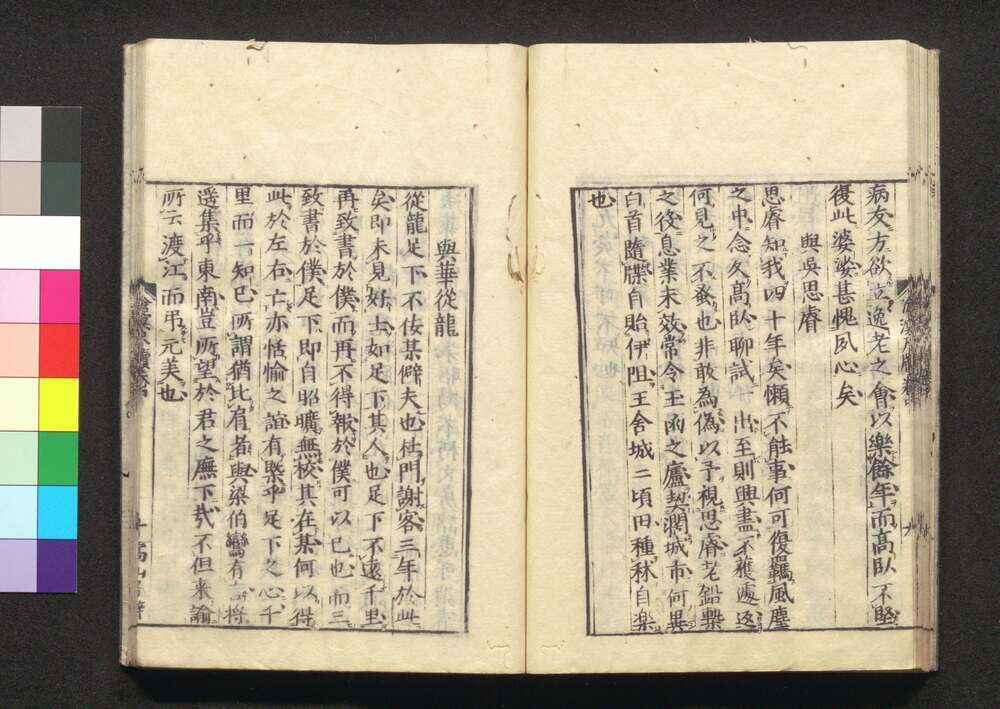 病友方欲立逸老之會以樂餘年而高臥不堅
復此婆娑甚愧夙心矣
與吳思睿
思睿知我四十年矣懶不能事何可復羈風塵
之中念久高臥聊試一出至則興盡不獲遽返
何見之不蚤也非敢為偽以予視思睿老鉛槧
之後息業未效常令王函之廬契濶城市何異
白首隨牒自貽伊阻王舍城二頃田種秫自樂
也
與華從龍
從龍足下不佞某僻夫也杜門謝客三年於此
矣即未見好士如足下其人也足下不遠千里
再致書於僕而再不得報於僕可以已也而三
致書於僕足下即自昭曠無校其在某何以得
此於左右亡亦恬愉之誼有槩乎足下之心千
里而一知已所謂猶比肩者與梁伯鸞有所將
遥集乎東南豈所望於君之廡下哉不但来諭
所云渡江而弔元美也